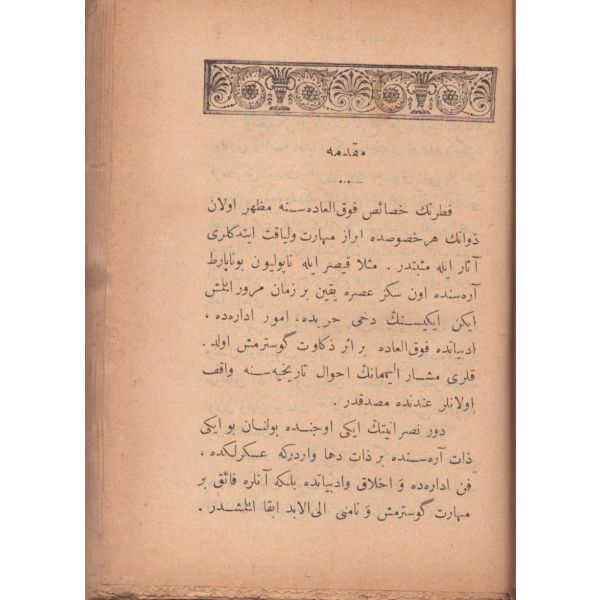 مقدمه
فطرتك خصائص فوق‌العاده‌سنه مظهر اولان
ذواتك هر خصوصده ابراز مهارت ولياقت ايتدكلرى
آثار ايله مثبتدر . مثلا قيصر ايله ناپوليون بوناپارط
آره‌سنده اون سكز عصره يقين بر زمان مرور ايتمش
ايكن ايكيسنك دخى حربده، امور اداره‌ده ،
ادبياتده فوق‌العاده بر اثر ذكاوت گوسترمش اولد .
قلرى مشار اليهمانك احوال تاريخيه‌سنه واقف
اولانلر عندنده مصدقدر .
دور نصرانيتك ايكى اوجنده بولنان بو ايكى
ذات آره‌سنده بر ذات دها واردركه عسكرلكده ،
فن اداره‌ده و اخلاق وادبياتده بلكه آنلره فائق بر
مهارت گوسترمش و نامنى الى‌الابد ابقا ايتمشدر .